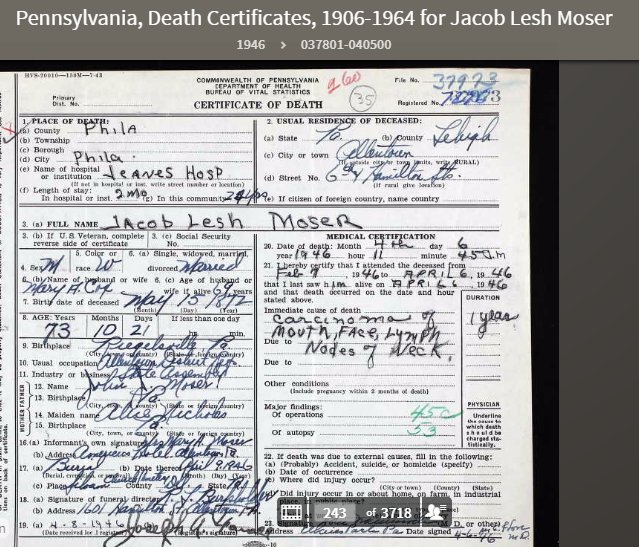 Pennsylvania, Death Certificates, 1906-1964 for Jacob Lesh Moser
1946 › 037801-040500
HVS-20010—150M—7-43
COMMONWEALTH OF PENNSYLVANIA
DEPARTMENT OF HEALTH
BUREAU OF VITAL STATISTICS
CERTIFICATE OF DEATH
Primary
Dist. No.
35
File No. 37973
Registered No.
1. PLACE OF DEATH:
(a) County Phila
(b) Township
(c) Borough
(d) City Phila.
(e) Name of hospital
or institution Jeanes Hosp
(If not in hospital or inst. write street number or location)
(f) Length of stay:
In hospital or inst. 2 mo (g) In this community
2. USUAL RESIDENCE OF DECEASED:
(a) State Pa (b) County Lehigh
(c) City or town Allentown
(If outside city or town limits, write RURAL)
(d) Street No. 6th & Hamilton Sts.
(If rural give location)
(e) If citizen of foreign country, name country
3. (a) FULL NAME Jacob Lesh Moser
3. (b) If U.S. Veteran, complete reverse side of certificate
3. (c) Social Security No.
4. Sex M
5. Color or race W
6. (a) Single, widowed, married, divorced Married
6. (b) Name of husband or wife Mary A. Cox
6. (c) Age of husband or wife if alive years
7. Birth date of deceased May 15 1872
(Month) (Day) (Year)
8. AGE: Years 73 Months 10 Days 21 If less than one day
hr. min.
9. Birthplace Riegelsville Pa.
(City, or county) (State or foreign country)
10. Usual occupation
11. Industry or business
12. Name John Moser
13. Birthplace Pa.
(City, or county) (State or foreign country)
14. Maiden name Nicholas
15. Birthplace Pa.
(City, town, or county) (State or foreign country)
FATHER
MOTHER
16. (a) Informant's own signature Mrs Mary A. Moser
(b) Address Americus Hotel Allentown Pa.
17. (a) Burial (b) Date thereof April 9 1946
(c) Place
18. (a) Signature of funeral director
(b) Address 1601 Hamilton St Allentown Pa.
19. (a) 4-8-1946 Joseph A
(Date received by local registrar)
MEDICAL CERTIFICATION
20. Date of death: Month 4th day 6
year 1946 hour 11 minute 45
21. I hereby certify that I attended the deceased from
Feb 7 1946 to APRIL 6, 1946
that I last saw him alive on APRIL 6 1946
and that death occurred on the date and hour stated above.
DURATION
Immediate cause of death
Carcinoma of 1 year
Mouth, Face, Lymph
Due to Nodes of Neck.
Due to
Other conditions
(Include pregnancy within 3 months of death)
Major findings:
Of operations 45c
Of autopsy 53
PHYSICIAN
Underline the cause to which death should be charged statistically.
22. If death was due to external causes, fill in the following:
(a) (Probably) Accident, suicide, or homicide (specify)
(b) Date of occurrence
(c) Where did injury occur?
(City) (County) (State)
Did injury occur in or about home, on farm, in industrial
243 of 3718
(M.D. or other)
Address Date signed 4-6-46